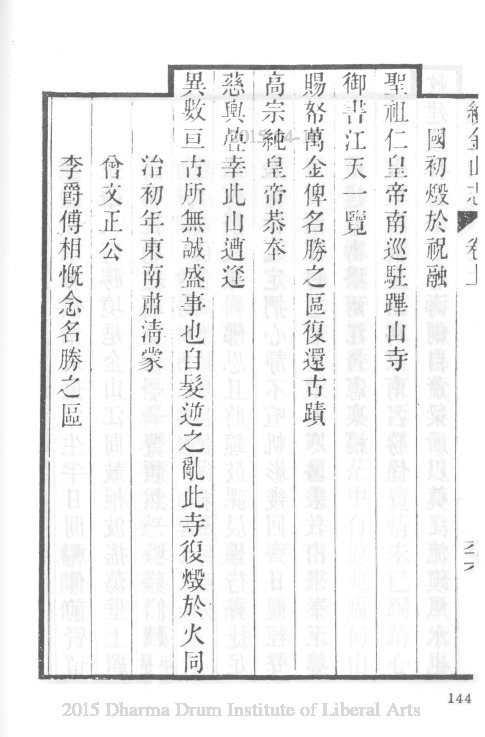 續金山志 卷上
國初燬於祝融
聖祖仁皇帝南巡駐蹕山寺
御書江天一覽
賜帑萬金俾名勝之區復還古蹟
高宗純皇帝恭奉
慈輿疊幸此山遭逢
異數亘古所無誠盛事也自髮逆之亂此寺復燬於火同
治初年東南肅清蒙
曾文正公
李爵傅相慨念名勝之區
144
2015 Dharma Drum Institute of Liberal Arts